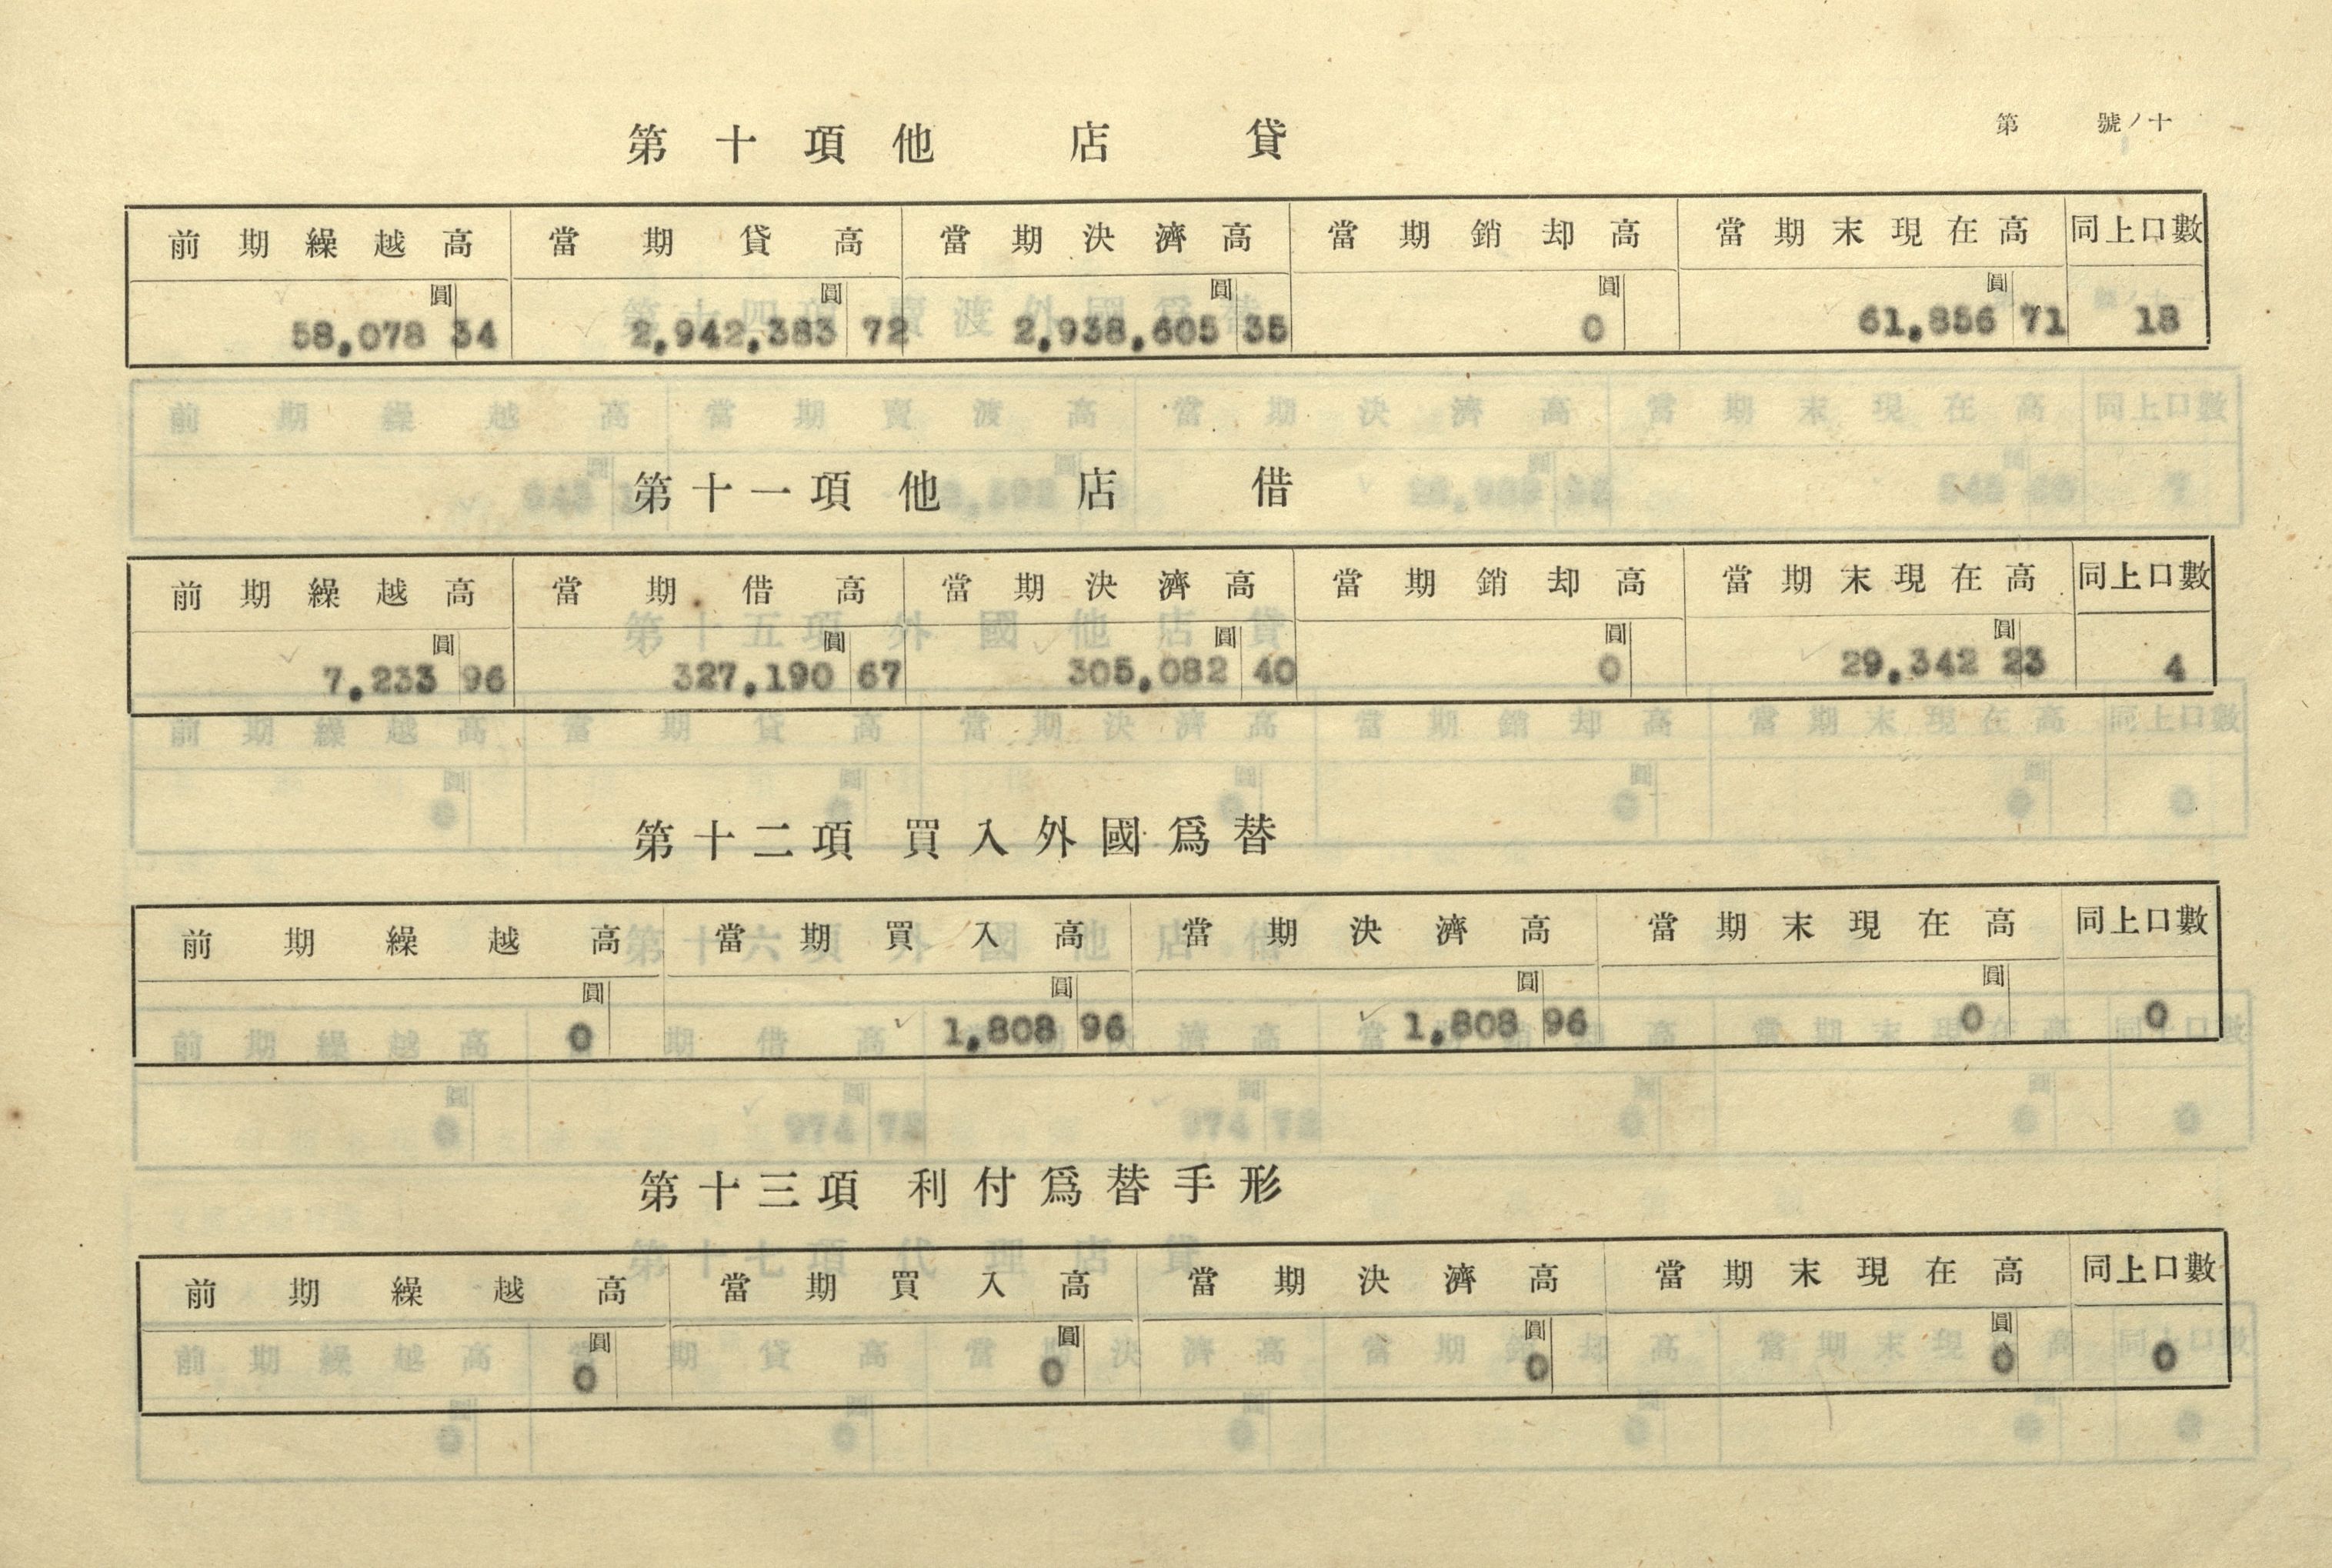 第 號ノ十
第十項 他店貸
前期繰越高 當期貸高 當期決濟高 當期銷却高 當期末現在高 同上口數
圓 圓 圓 圓 圓
58,078 34 2,942,383 72 2,938,605 35 0 61,856 71 18
第十一項 他店借
前期繰越高 當期借高 當期決濟高 當期銷却高 當期末現在高 同上口數
圓 圓 圓 圓 圓
7,233 96 327,190 67 305,082 40 0 29,342 23 4
第十二項 買入外國爲替
前期繰越高 當期買入高 當期決濟高 當期末現在高 同上口數
圓 圓 圓 圓
0 1,808 96 1,808 96 0 0
第十三項 利付爲替手形
前期繰越高 當期買入高 當期決濟高 當期末現在高 同上口數
圓 圓 圓 圓
0 0 0 0 0